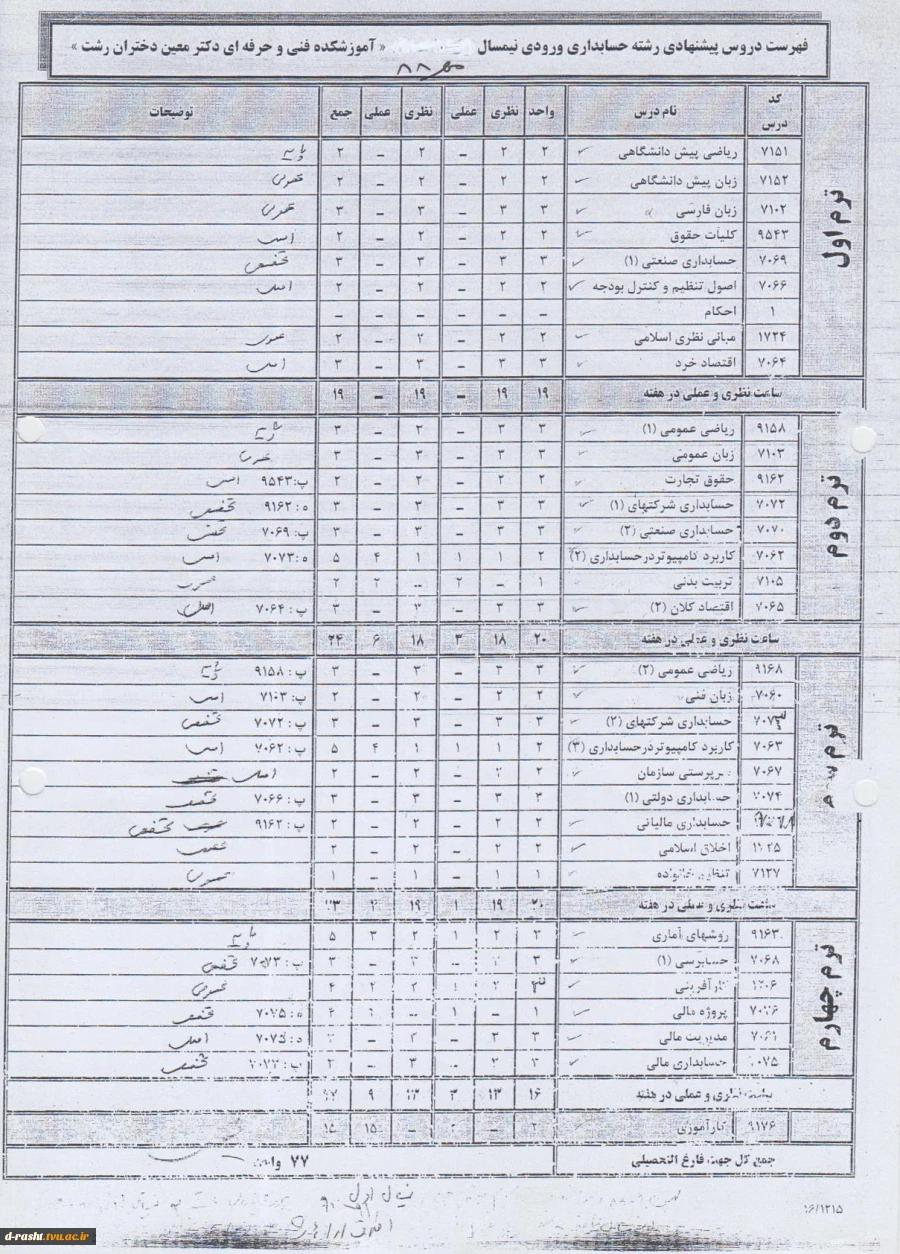 فهرست دروس پیشنهادی رشته حسابداری ورودی نیمسال « آموزشکده فنی و حرفه ای دکتر معین دختران رشت »
مهر ۸۸
کد درس نام درس واحد نظری عملی نظری عملی جمع توضیحات
ترم اول
۷۱۵۱ ریاضی پیش دانشگاهی ۲ ۲ – ۲ – ۲ پایه
۷۱۵۲ زبان پیش دانشگاهی ۲ ۲ – ۲ – ۲ عمومی
۷۱۰۲ زبان فارسی ۳ ۳ – ۳ – ۳ عمومی
۹۵۴۳ کلیات حقوق ۲ ۲ – ۲ – ۲ اصلی
۷۰۶۹ حسابداری صنعتی (۱) ۳ ۳ – ۳ – ۳ تخصصی
۷۰۶۶ اصول تنظیم و کنترل بودجه ۲ ۲ – ۲ – ۲ اصلی
۱ احکام – – – – – –
۱۷۲۴ مبانی نظری اسلامی ۲ ۲ – ۲ – ۲ عمومی
۷۰۶۴ اقتصاد خرد ۳ ۳ – ۳ – ۳ اصلی
ساعت نظری و عملی در هفته ۱۹ ۱۹ – ۱۹ – ۱۹
ترم دوم
۹۱۵۸ ریاضی عمومی (۱) ۳ ۳ – ۳ – ۳ پایه
۷۱۰۳ زبان عمومی ۳ ۳ – ۳ – ۳ عمومی
۹۱۶۲ حقوق تجارت ۲ ۲ – ۲ – ۲ پ:۹۵۴۳ اصلی
۷۰۷۲ حسابداری شرکتهای (۱) ۳ ۳ – ۳ – ۳ ه:۹۱۶۲ تخصصی
۷۰۷۰ حسابداری صنعتی (۲) ۳ ۳ – ۳ – ۳ پ:۷۰۶۹ تخصصی
۷۰۶۲ کاربرد کامپیوتردرحسابداری (۲) ۲ ۱ ۱ ۱ ۴ ۵ ه:۷۰۷۳ اصلی
۷۱۰۵ تربیت بدنی ۱ – ۲ – ۲ ۲ عمومی
۷۰۶۵ اقتصاد کلان (۲) ۳ ۳ – ۳ – ۳ پ:۷۰۶۴ اصلی
ساعت نظری و عملی در هفته ۲۰ ۱۸ ۳ ۱۸ ۶ ۲۴
ترم سوم
۹۱۶۸ ریاضی عمومی (۲) ۳ ۳ – ۳ – ۳ پ:۹۱۵۸ پایه
۷۰۶۰ زبان فنی ۲ ۲ – ۲ – ۲ پ:۷۱۰۳ اصلی
۷۰۷۳ حسابداری شرکتهای (۲) ۳ ۳ – ۳ – ۳ پ:۷۰۷۲ تخصصی
۷۰۶۳ کاربرد کامپیوتردرحسابداری (۳) ۲ ۱ ۱ ۱ ۴ ۵ پ:۷۰۶۲ اصلی
۷۰۶۷ سرپرستی سازمان ۲ ۲ – ۲ – ۲ اصلی
۷۰۷۴ حسابداری دولتی (۱) ۳ ۳ – ۳ – ۳ پ:۷۰۶۶ تخصصی
حسابداری مالیاتی ۲ ۲ – ۲ – ۲ پ:۹۱۶۲ تخصصی
اخلاق اسلامی ۲ ۲ – ۲ – ۲
۷۱۲۷ تنظیم خانواده ۱ ۱ – ۱ – ۱ عمومی
ساعت نظری و عملی در هفته ۲۰ ۱۹ ۱ ۱۹
ترم چهارم
۹۱۶۳ روشهای آماری ۳ ۲ ۱ ۲ ۳ ۵ پایه
۷۰۶۸ حسابرسی (۱) ۳ – ۳ – ۳ پ:۷۰۷۳ تخصصی
کارآفرینی ۲ ۱ ۲ ۲ ۴ عمومی
پروژه مالی ۱ – ۱ – ۴ ه:۷۰۷۵ تخصصی
مدیریت مالی ۳ ۳ – ه:۷۰۷۵ اصلی
۷۰۷۵ حسابداری مالی ۳ – ۳ – تخصصی
ساعت نظری و عملی در هفته ۱۶ ۱۳ ۳ ۱۳ ۹
۹۱۷۶ کارآموزی ۲ – ۲ – ۱۵ ۱۵
جمع کل جهت فارغ التحصیلی ۷۷ واحد
d-rasht.tvu.ac.ir